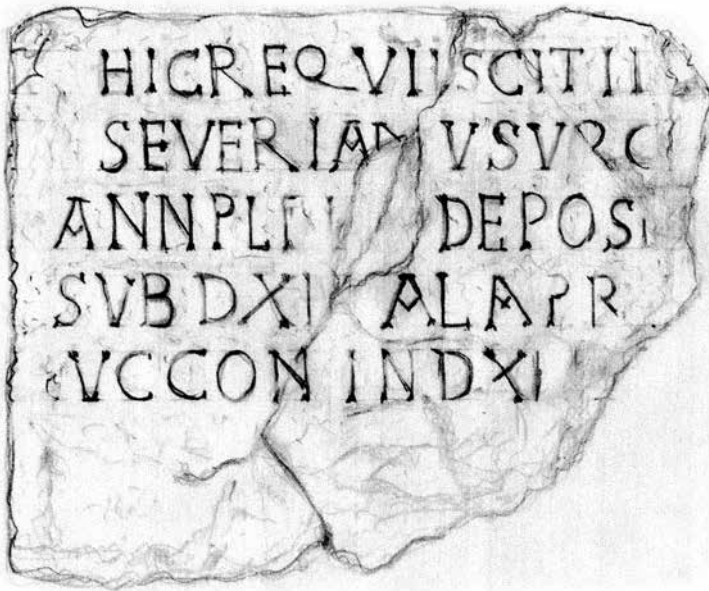 HICREQVIISCITII
SEVERIANVSVRC
ANNPLI DEPOSI
SVBDXI ALAPR
VCCON INDXI